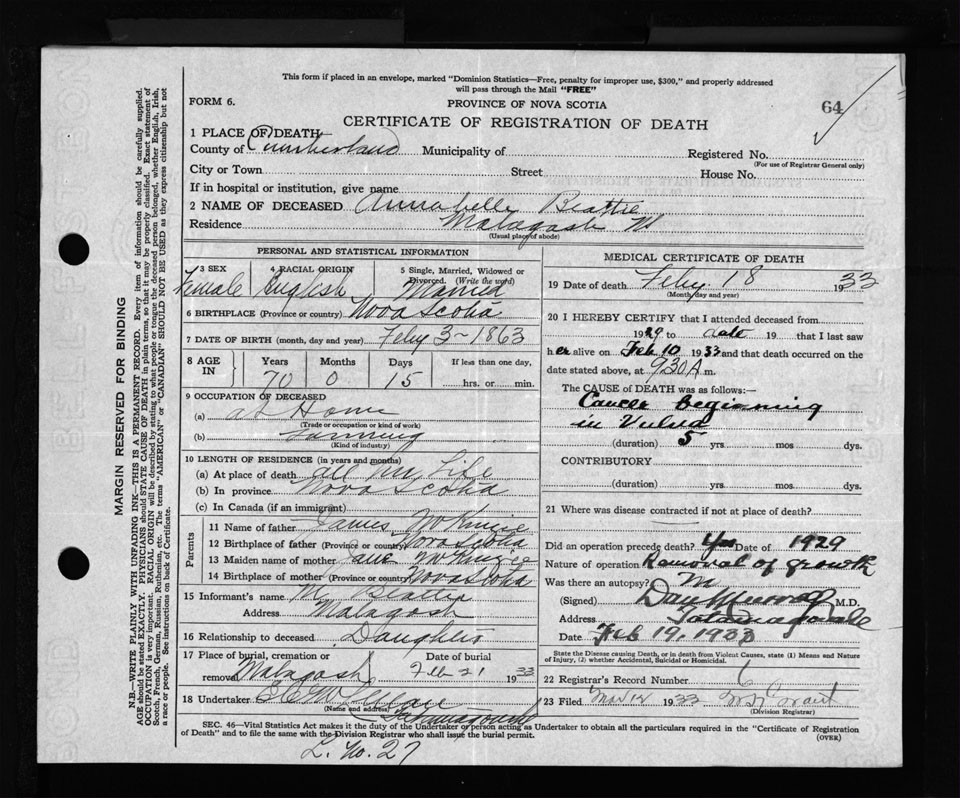 This form if placed in an envelope, marked "Dominion Statistics—Free, penalty for improper use, $300," and properly addressed
will pass through the Mail "FREE"
FORM 6.
PROVINCE OF NOVA SCOTIA
64
CERTIFICATE OF REGISTRATION OF DEATH
1 PLACE OF DEATH
County of Cumberland Municipality of Registered No.
(For use of Registrar General only)
City or Town Street House No.
If in hospital or institution, give name
2 NAME OF DECEASED Annabelle Beattie
Residence Malagash NS
(Usual place of abode)
PERSONAL AND STATISTICAL INFORMATION
3 SEX Female
4 RACIAL ORIGIN English
5 Single, Married, Widowed or Divorced. (Write the word) Married
6 BIRTHPLACE (Province or country) Nova Scotia
7 DATE OF BIRTH (month, day and year) Feby 3 - 1863
8 AGE IN Years 70 Months 0 Days 15 If less than one day, hrs. or min.
9 OCCUPATION OF DECEASED
(a) at Home
(Trade or occupation or kind of work)
(b) Farming
(Kind of industry)
10 LENGTH OF RESIDENCE (in years and months)
(a) At place of death all my Life
(b) In province Nova Scotia
(c) In Canada (if an immigrant)
Parents
11 Name of father James
12 Birthplace of father (Province or country) Nova Scotia
13 Maiden name of mother Jane
14 Birthplace of mother (Province or country) Nova Scotia
15 Informant's name M Beattie
Address Malagash
16 Relationship to deceased Daughter
17 Place of burial, cremation or removal Malagash Date of burial Feb 21 1933
18 Undertaker
(Name and address) Tatamagouche
MEDICAL CERTIFICATE OF DEATH
19 Date of death Feby 18 1933
(Month, day and year)
20 I HEREBY CERTIFY that I attended deceased from
1929 to date 19 that I last saw
her alive on Feb 10 1933 and that death occurred on the
date stated above, at 9.30 A m.
The CAUSE OF DEATH was as follows:—
Cancer Beginning
in Vulva
(duration) 5 yrs. mos. dys.
CONTRIBUTORY
(duration) yrs. mos. dys.
21 Where was disease contracted if not at place of death?
Did an operation precede death? Yes Date of 1929
Nature of operation Removal of growth
Was there an autopsy?
(Signed) Dan Murray M.D.
Address Tatamagouche
Date Feb 19, 1933
State the Disease causing Death, or in death from Violent Causes, state (1) Means and
Nature of Injury, (2) whether Accidental, Suicidal or Homicidal.
22 Registrar's Record Number 6
23 Filed Mar 12 1933 Grant
(Division Registrar)
SEC. 46—Vital Statistics Act makes it the duty of the Undertaker or person acting as Undertaker to obtain all the particulars required in the "Certificate of Registration
of Death" and to file the same with the Division Registrar who shall issue the burial permit.
(OVER)
L. No. 27
MARGIN RESERVED FOR BINDING
N.B.—WRITE PLAINLY WITH UNFADING INK—THIS IS A PERMANENT RECORD. Every item of information should be carefully supplied.
AGE should be stated EXACTLY. PHYSICIANS should STATE CAUSE OF DEATH in plain terms, so that it may be properly classified. Exact statement of
OCCUPATION is very important. RACIAL ORIGIN will be described by stating to what people or tongue the deceased person belonged, whether English, Irish,
Scotch, French, German, Russian, Ruthenian, etc. The terms "AMERICAN" or "CANADIAN" SHOULD NOT BE USED as they express citizenship but not
a race or people. See instructions on back of Certificate.